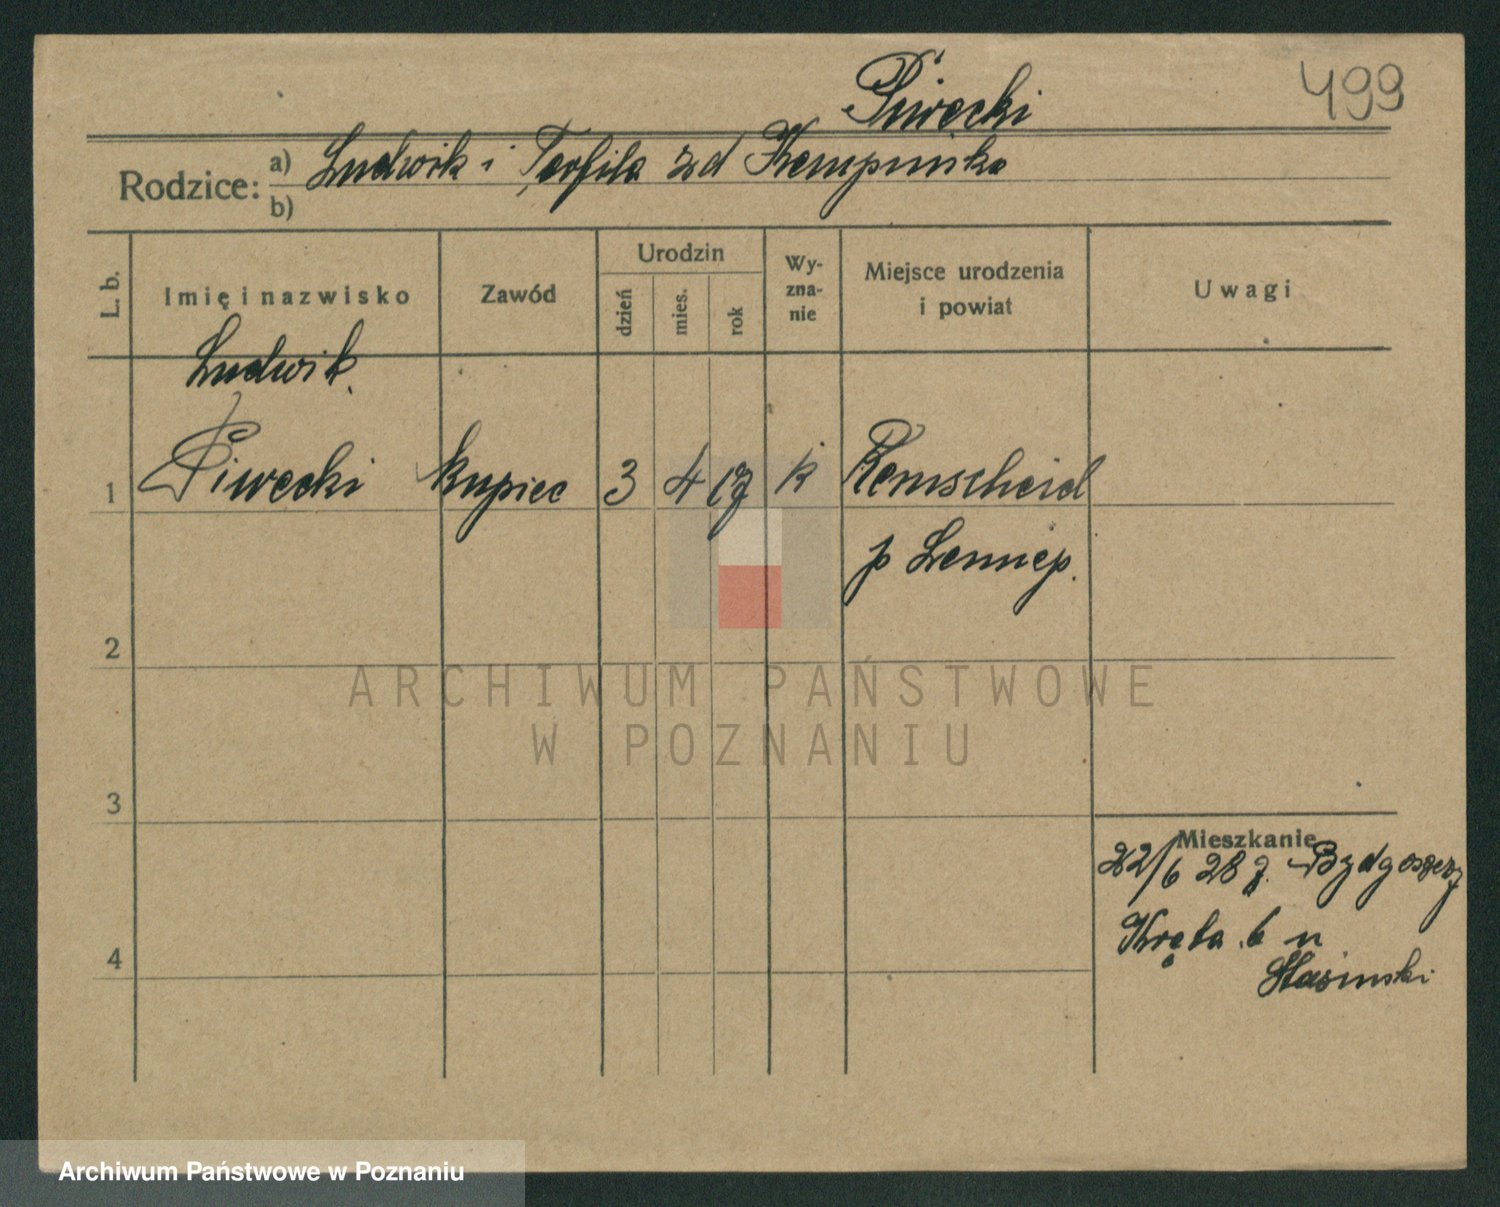 Piwecki 499
Rodzice: a) Ludwik i Teofila zd Kempinska
b)
L. b. Imię i nazwisko Zawód Urodzin dzień mies. rok Wyznanie Miejsce urodzenia i powiat Uwagi
Ludwik
1 Piwecki kupiec 3 4 k Remscheid
p Lennep.
2
3
4
Mieszkanie
22/6 28 Bydgoszcz
6
ARCHIWUM PAŃSTWOWE
W POZNANIU
Archiwum Państwowe w Poznaniu